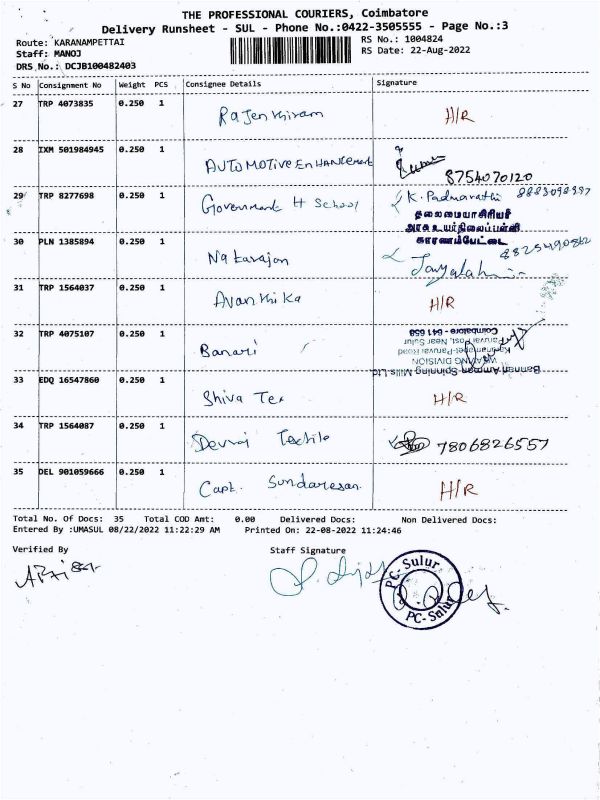 THE PROFESSIONAL COURIERS, Coimbatore
Delivery Runsheet - SUL - Phone No.:0422-3505555 - Page No.:3
Route: KARANAMPETTAI
RS No.: 1004824
Staff: MANOJ
RS Date: 22-Aug-2022
DRS No.: DCJB100482403
S No Consignment No Weight PCS Consignee Details Signature
27 TRP 4073835 0.250 1 Rajenthiram H/R
28 IXM 501984945 0.250 1 AUTOMOTIVE ENHANCEMENT
8754070120
29 TRP 8277698 0.250 1 Government H School K. Padmavathi 8883098997
தலைமையாசிரியர்
அரசு உயர்நிலைப்பள்ளி
காரணம்பேட்டை
30 PLN 1385894 0.250 1 Natarajan
31 TRP 1564037 0.250 1 Avanthika H/R
32 TRP 4075107 0.250 1 Banari
Bannari Amman Spinning Mills Ltd
WEAVING DIVISION
Karanampet-Paruvai Road
Paruvai Post, Near Sulur
Coimbatore - 641 658
33 EDQ 16547860 0.250 1 Shiva Tex H/R
34 TRP 1564087 0.250 1 Devraj Textile 7806826557
35 DEL 901059666 0.250 1 Capt. Sundaresan H/R
Total No. Of Docs: 35 Total COD Amt: 0.00 Delivered Docs: Non Delivered Docs:
Entered By :UMASUL 08/22/2022 11:22:29 AM Printed On: 22-08-2022 11:24:46
Verified By Staff Signature
PC-Sulur
PC-Sulur